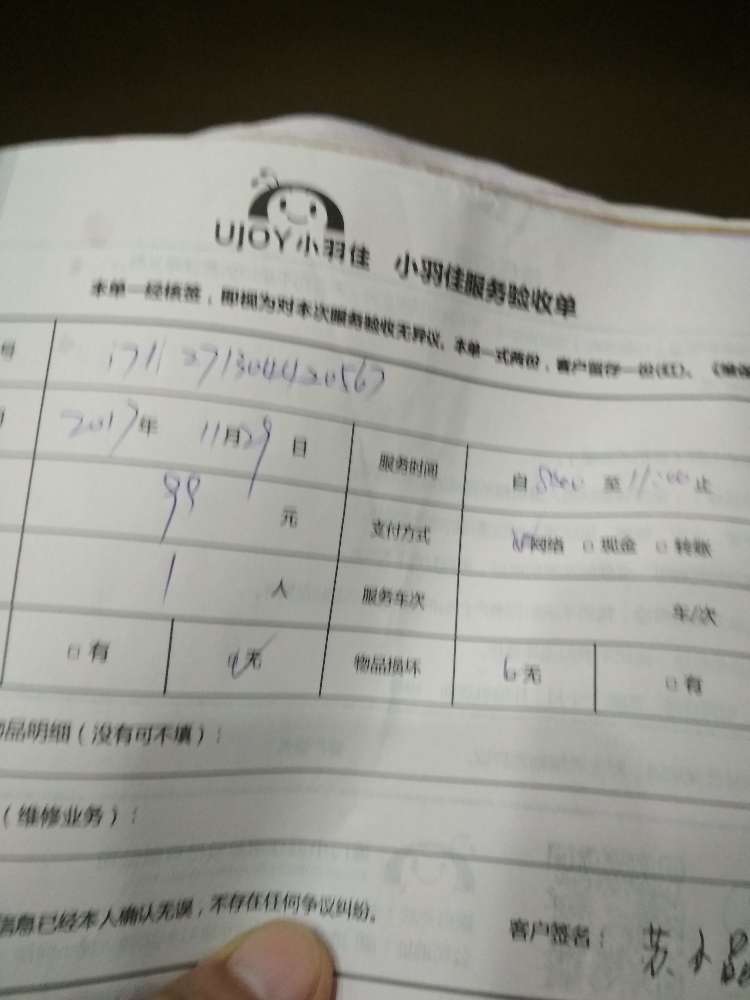 UJOY 小羽佳 小羽佳服务验收单
本单一经核签，即视为对本次服务验收无异议。本单一式两份，客户留存一份(红)、
号 1711271304420567
2017年 11月29日 服务时间 自 8:00 至 11:00 止
99 元 支付方式 网络 □ 现金 □ 转账
1 人 服务车次 车/次
□ 有 无 物品损坏 无 □ 有
品明细（没有可不填）：
（维修业务）：
信息已经本人确认无误，不存在任何争议纠纷。 客户签名：苏小